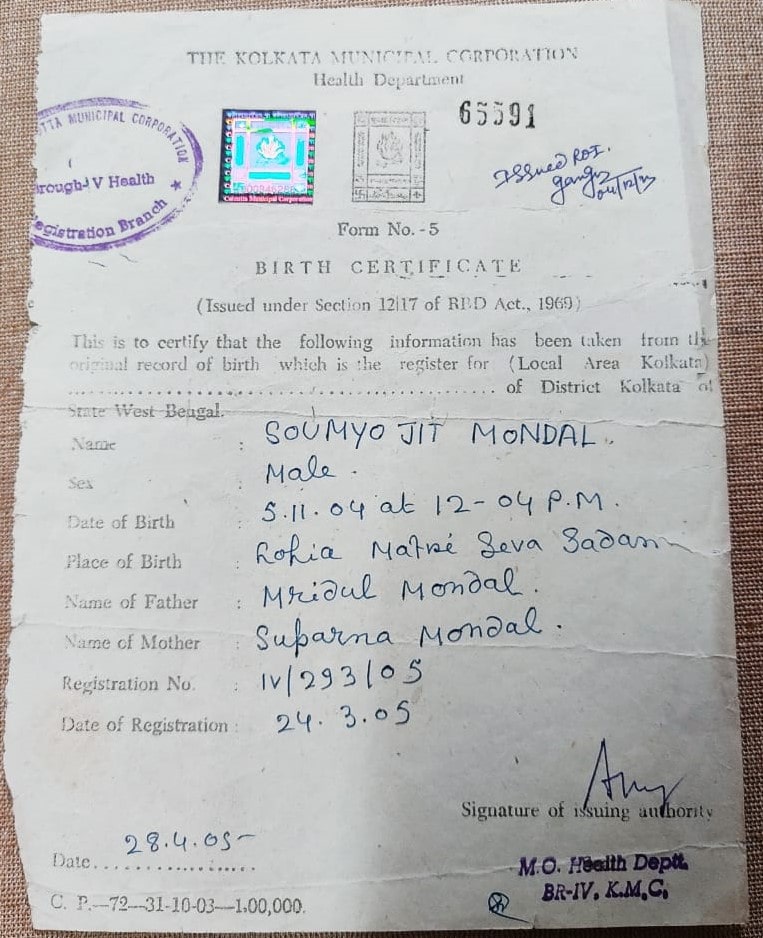 THE KOLKATA MUNICIPAL CORPORATION
Health Department
65591
TTA MUNICIPAL CORPORATION
rough-V Health
egistration Branch
Calcutta Municipal Corporation
Issued ROI.
04/12/
Form No. - 5
BIRTH CERTIFICATE
(Issued under Section 12|17 of RBD Act., 1969)
This is to certify that the following information has been taken from the
original record of birth which is the register for (Local Area Kolkata)
of District Kolkata of
State West Bengal.
Name : SOUMYOJIT MONDAL.
Sex : Male.
Date of Birth : 5.11.04 at 12-04 P.M.
Place of Birth : Lohia Matri Seva Sadan
Name of Father : Mridul Mondal.
Name of Mother : Suparna Mondal.
Registration No. : IV/293/05
Date of Registration : 24.3.05
Signature of issuing authority
Date 28.4.05
M.O. Health Deptt.
BR-IV. K.M.C.
C. P.—72—31-10-03—1,00,000.